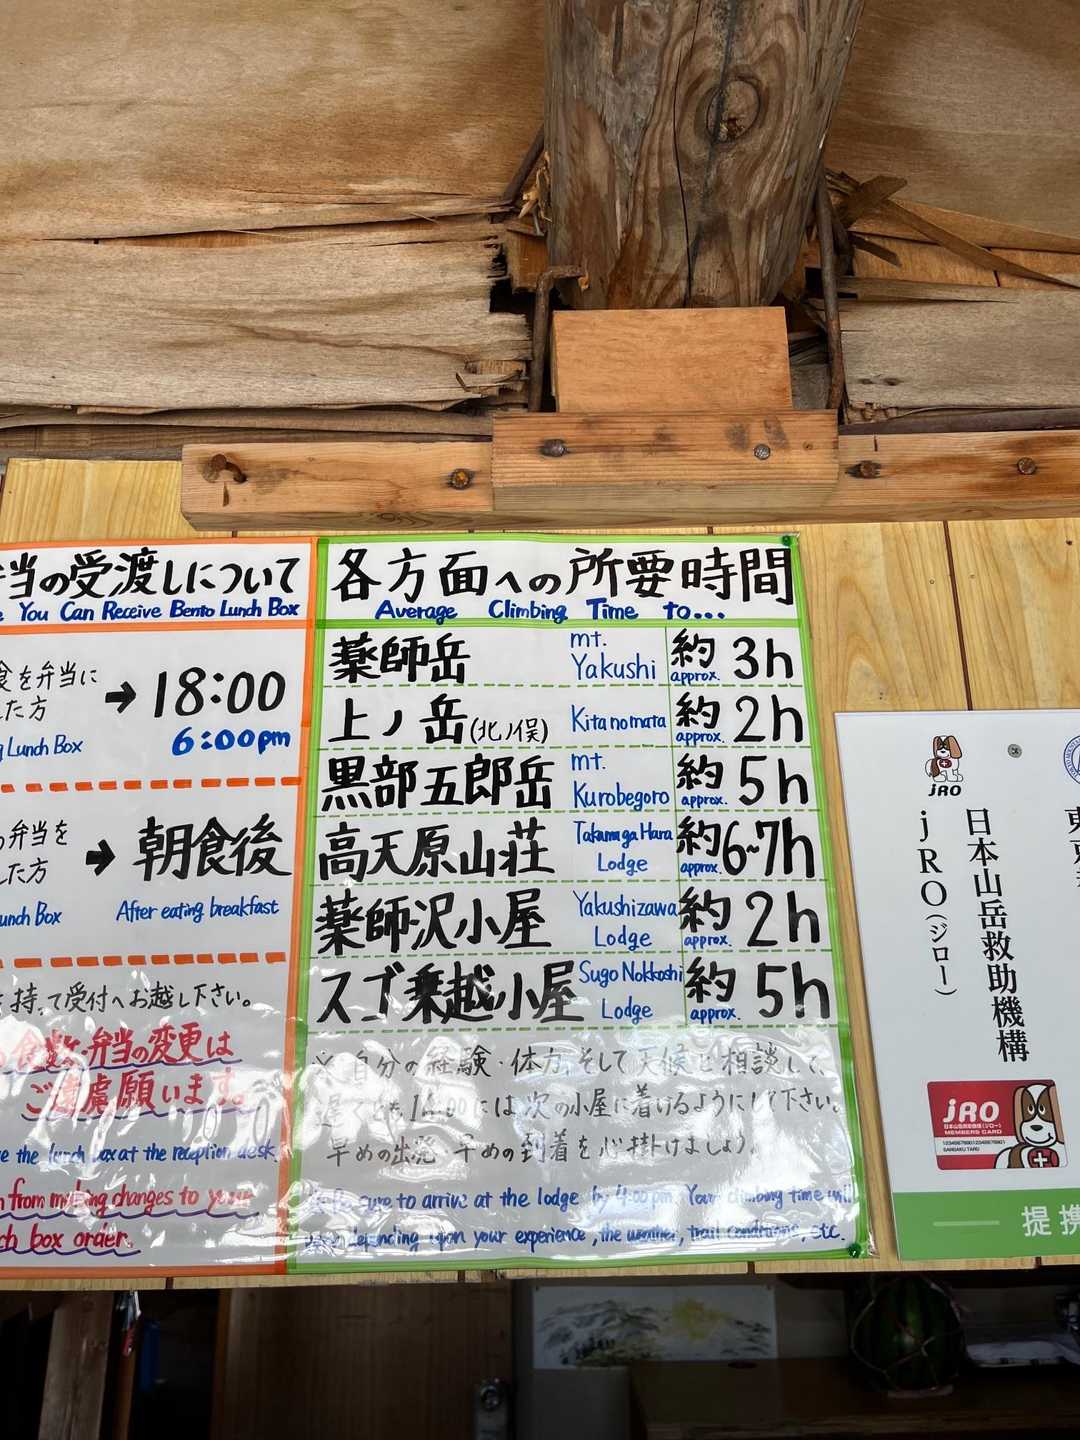 当の受渡しについて
You Can Receive Bento Lunch Box
食を弁当に
した方
➔ 18:00
Lunch Box
6:00pm
弁当を
した方
➔ 朝食後
Lunch Box
After eating breakfast
持って受付へお越し下さい。
食数・弁当の変更は
ご遠慮願います。
the lunch box at the reception desk.
from making changes to your
box order.
各方面への所要時間
Average Climbing Time to...
薬師岳 mt. Yakushi 約 approx. 3h
上ノ岳(北ノ俣) Kitanomata 約 approx. 2h
黒部五郎岳 mt. Kurobegoro 約 approx. 5h
高天原山荘 Takamaga Hara Lodge 約 approx. 6~7h
薬師沢小屋 Yakushizawa Lodge 約 approx. 2h
スゴ乗越小屋 Sugo Nokkoshi Lodge 約 approx. 5h
※ 自分の経験・体力、そして天候と相談して、
遅くとも16:00には次の小屋に着けるようにして下さい。
早めの出発・早めの到着を心掛けましょう。
sure to arrive at the lodge by 4:00pm. Your climbing time will
depending upon your experience, the weather, trail conditions, etc.
jRO
日本山岳救助機構
jRO(ジロー)
jRO
日本山岳救助機構(ジロー)
MEMBERS CARD
SANGAKU TARO
提携